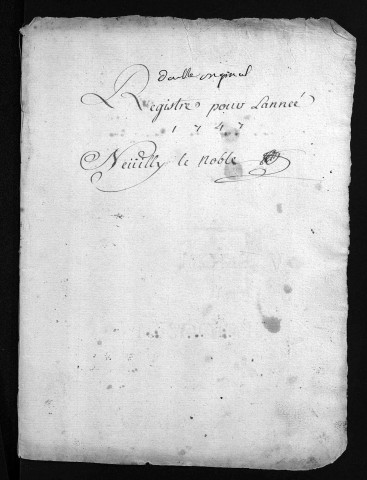 double original
Registre pour Lanneé
1747
Neüilly le noble